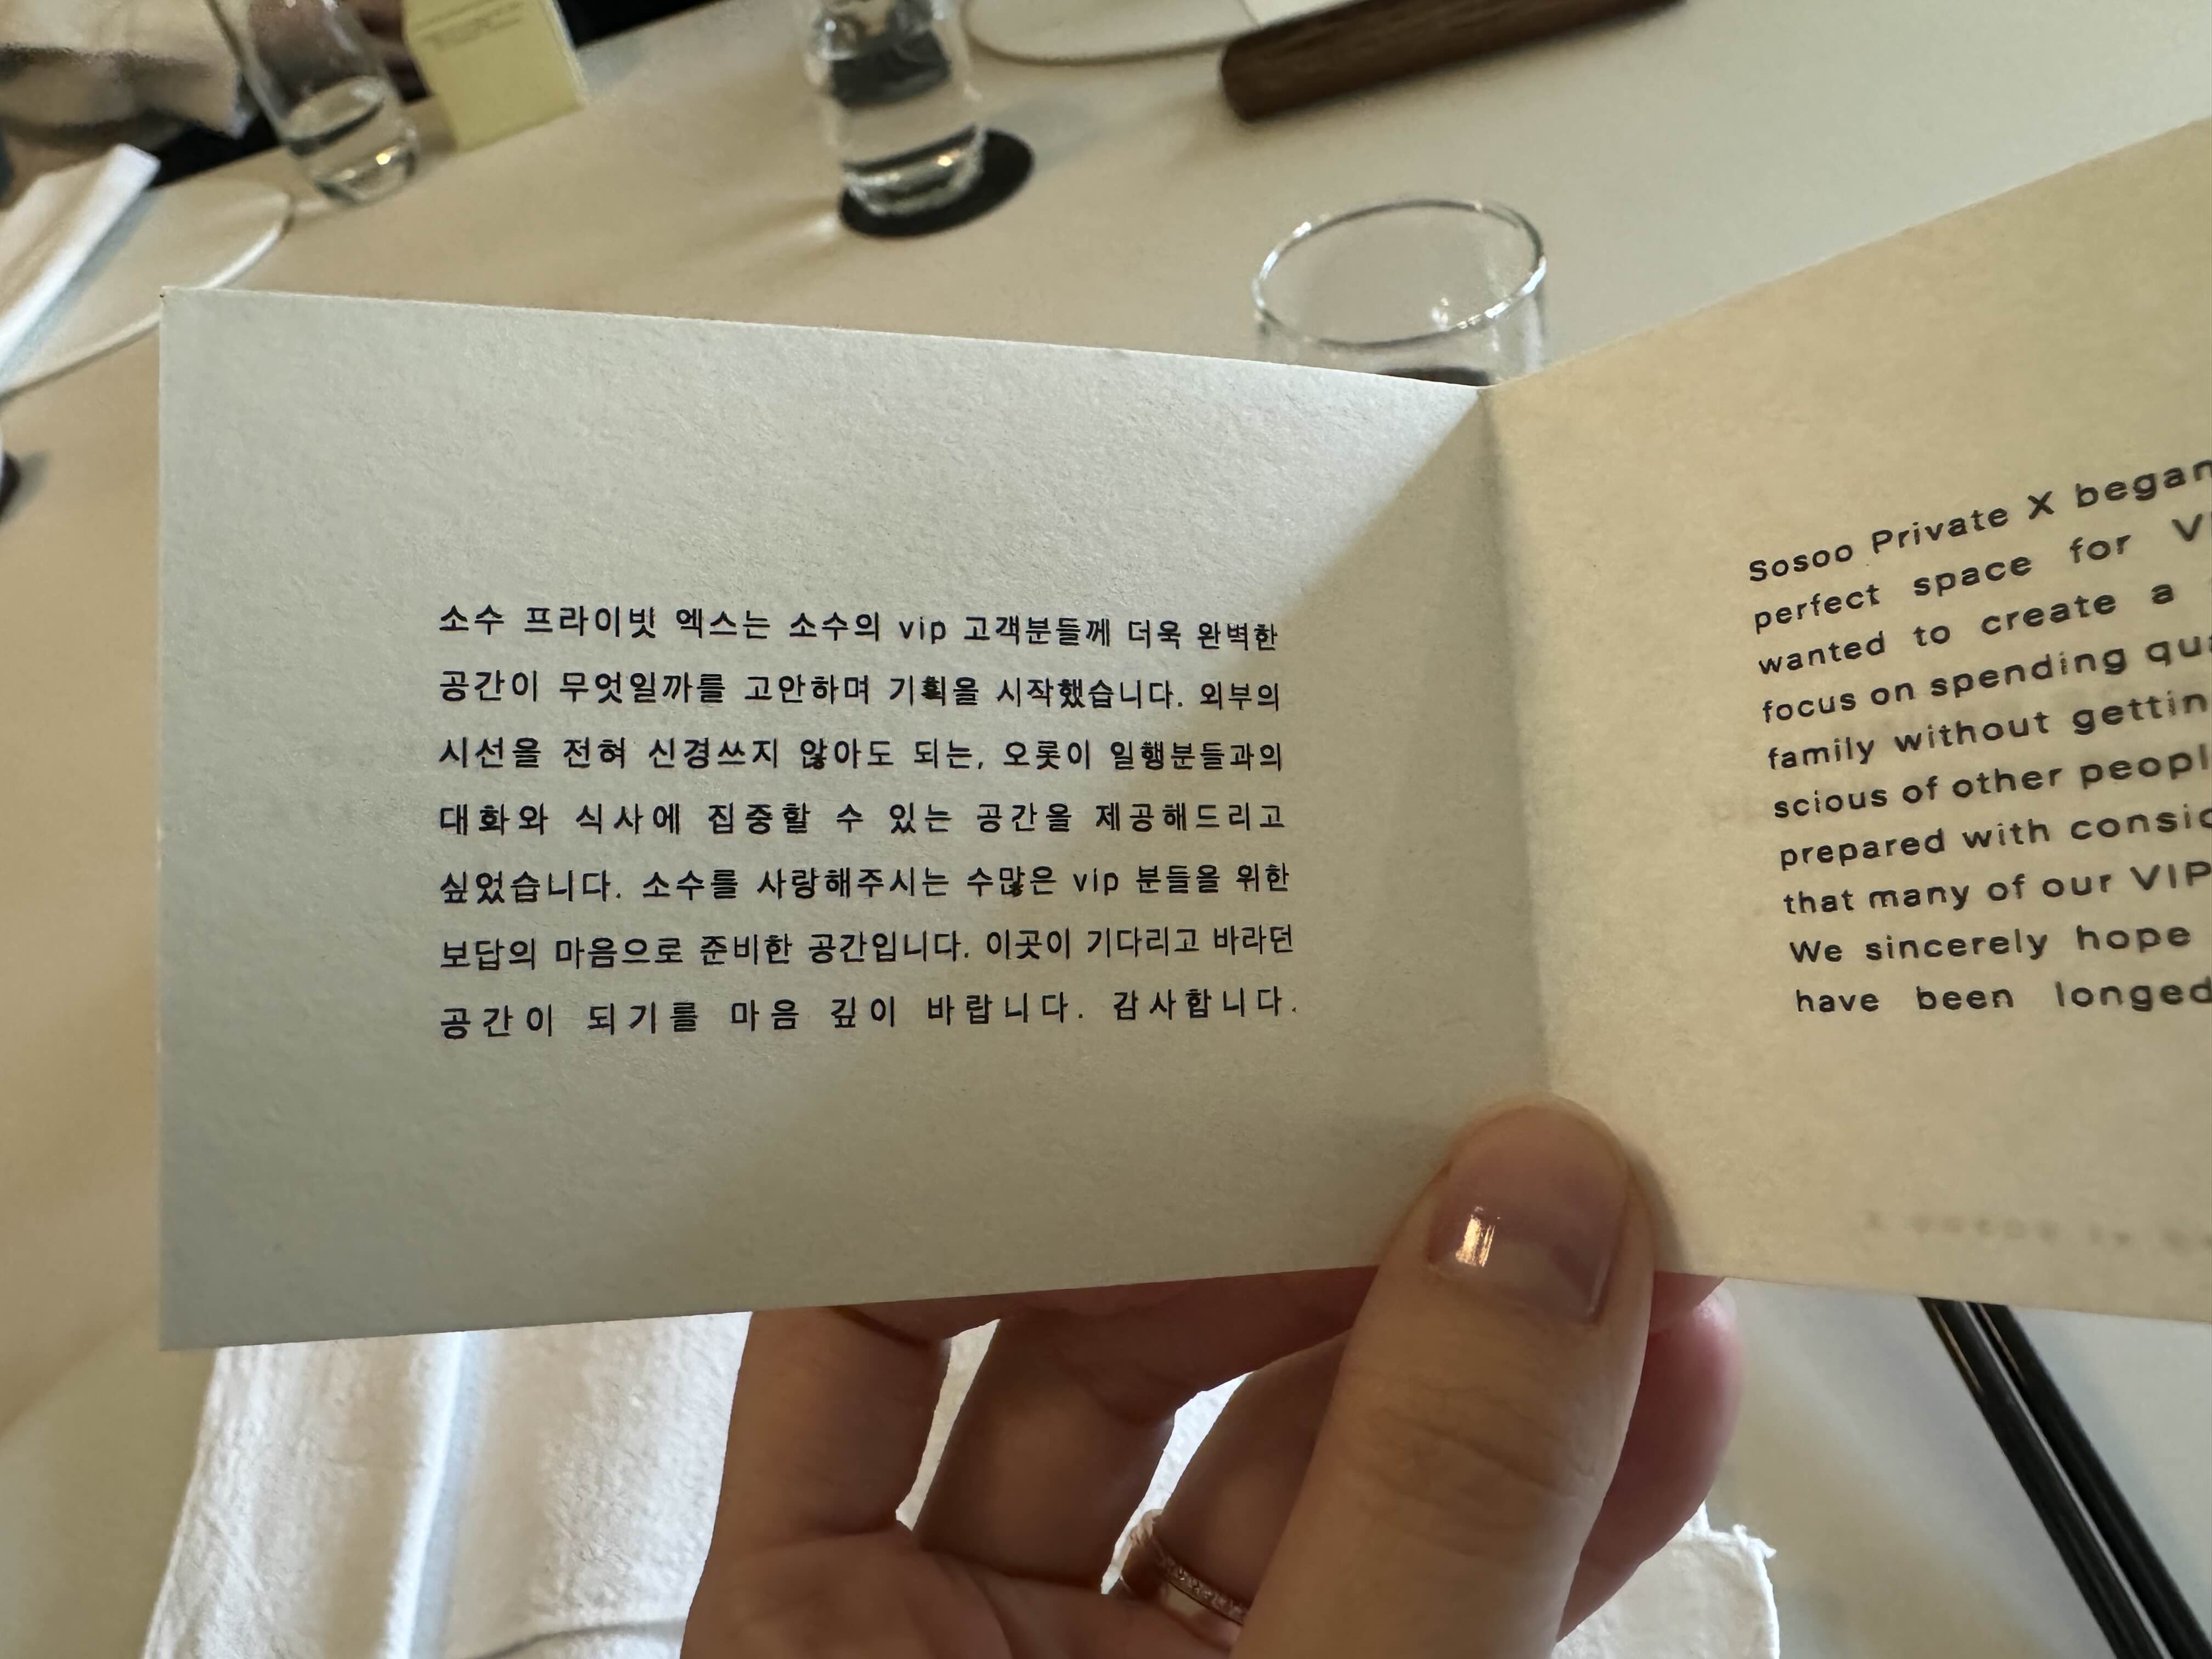 소수 프라이빗 엑스는 소수의 vip 고객분들께 더욱 완벽한
공간이 무엇일까를 고안하며 기획을 시작했습니다. 외부의
시선을 전혀 신경쓰지 않아도 되는, 오롯이 일행분들과의
대화와 식사에 집중할 수 있는 공간을 제공해드리고
싶었습니다. 소수를 사랑해주시는 수많은 vip 분들을 위한
보답의 마음으로 준비한 공간입니다. 이곳이 기다리고 바라던
공간이 되기를 마음 깊이 바랍니다. 감사합니다.
Sosoo Private X began
perfect space for
wanted to create a
focus on spending
family without
scious of other
prepared with
that many of our VIP
We sincerely hope
have been longed